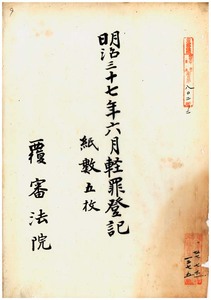 明治三十七年六月軽罪登記
紙數五枚
覆審法院